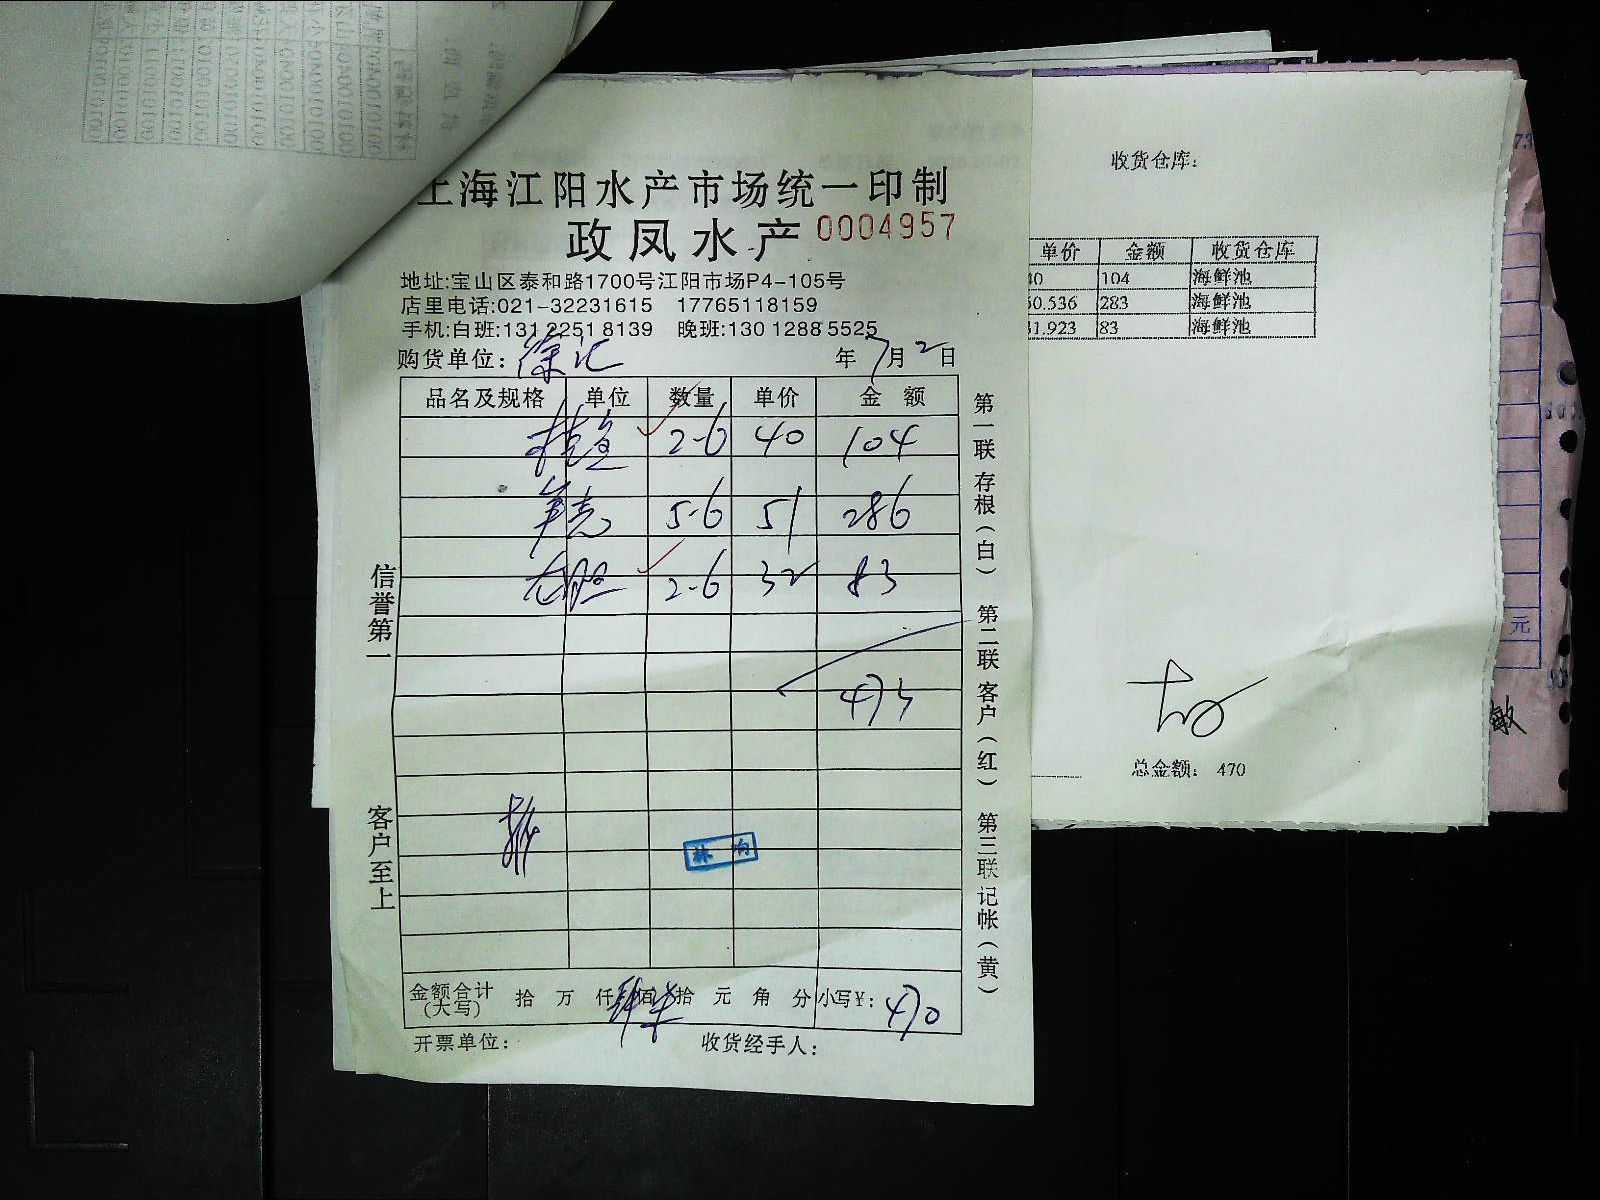 上海江阳水产市场统一印制
政凤水产 0004957
地址:宝山区泰和路1700号江阳市场P4-105号
店里电话:021-32231615 17765118159
手机:白班:131 2251 8139 晚班:130 1288 5525
购货单位: 徐汇 年 7 月 2 日
品名及规格 单位 数量 单价 金额
桂鱼 2-6 40 104
5-6 51 286
2-6 32 83
473
林
金额合计(大写) 拾 万 仟 佰 拾 元 角 分 小写¥: 470
开票单位: 收货经手人:
信誉第一
客户至上
第一联存根(白) 第二联客户(红) 第三联记帐(黄)
收货仓库:
单价 金额 收货仓库
40 104 海鲜池
50.536 283 海鲜池
31.923 83 海鲜池
总金额: 470
73
元
敏